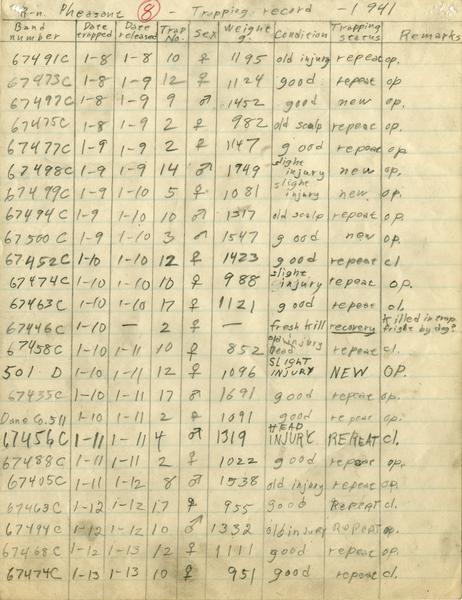 R-n. Pheasant 8 - Trapping record - 1941
Band number Date trapped Date released Trap No. Sex Weight g. Condition Trapping status Remarks
67491C 1-8 1-8 10 ♀ 1195 old injury repeat op.
67473C 1-8 1-9 12 ♀ 1124 good repeat op
67497C 1-8 1-9 9 ♂ 1452 good new op.
67475C 1-8 1-9 2 ♀ 982 old scalp repeat op.
67477C 1-9 1-9 2 ♀ 1147 good repeat op
67498C 1-9 1-9 14 ♂ 1749 slight injury new op.
67499C 1-9 1-10 5 ♀ 1081 slight injury new op.
67494C 1-9 1-10 10 ♂ 1317 old scalp repeat op.
67500C 1-9 1-10 3 ♂ 1547 good new op.
67452C 1-10 1-10 12 ♀ 1423 good repeat cl
67474C 1-10 1-10 10 ♀ 988 slight injury repeat op.
67463C 1-10 1-10 17 ♀ 1121 good repeat cl.
67446C 1-10 — 2 ♀ — fresh kill recovery Killed in trap. fright by dog?
67458C 1-10 1-11 10 ♀ 852 old injury head repeat cl.
501 D 1-10 1-11 12 ♀ 1096 SLIGHT INJURY NEW OP.
67435C 1-10 1-11 17 ♂ 1691 good repeat op.
Dane Co. 511 1-10 1-11 2 ♀ 1091 good repeat op.
67456C 1-11 1-11 4 ♂ 1319 HEAD INJURY REPEAT cl.
67488C 1-11 1-11 2 ♀ 1022 good repeat op.
67405C 1-11 1-12 8 ♂ 1538 old injury repeat op.
67463C 1-12 1-12 17 ♀ 955 good REPEAT cl.
67494C 1-12 1-12 10 ♂ 1332 old injury REPEAT op.
67468C 1-12 1-13 12 ♀ 1111 good repeat op.
67474C 1-13 1-13 10 ♀ 951 good repeat cl.